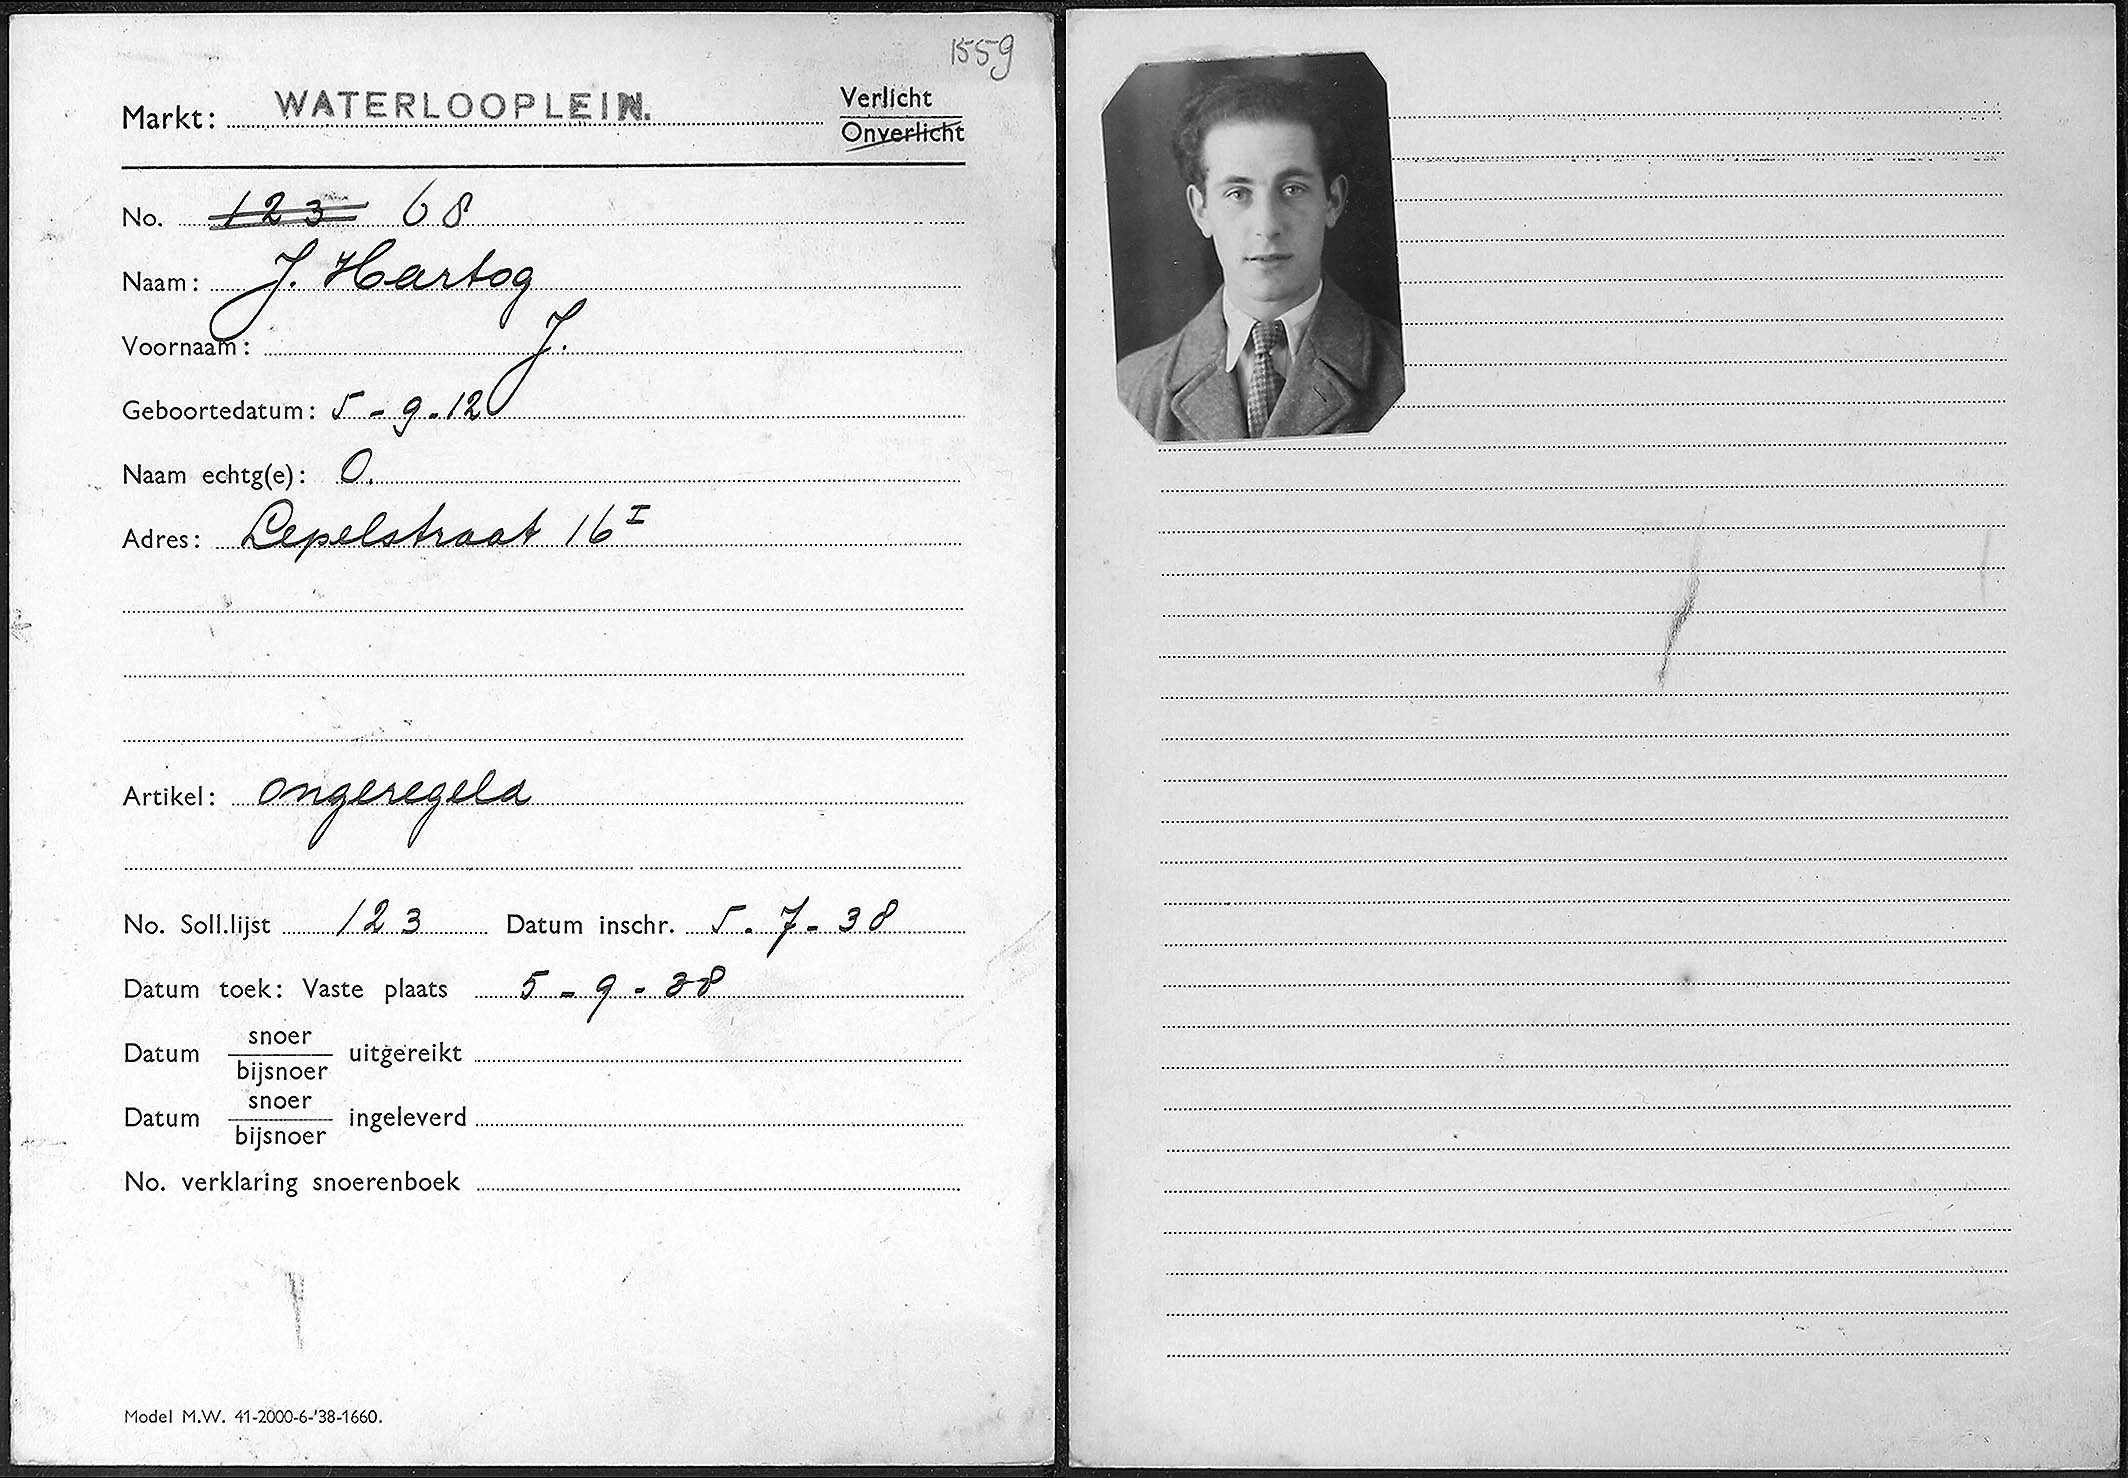 1559
Markt: WATERLOOPLEIN. Verlicht
Onverlicht
No. 123 68
Naam: J. Hartog
Voornaam: J.
Geboortedatum: 5-9-12
Naam echtg(e): O.
Adres: Lepelstraat 16 I
Artikel: ongeregeld
No. Soll.lijst 123 Datum inschr. 5.7-38
Datum toek: Vaste plaats 5-9-38
Datum snoer/bijsnoer uitgereikt
Datum snoer/bijsnoer ingeleverd
No. verklaring snoerenboek
Model M.W. 41-2000-6-'38-1660.